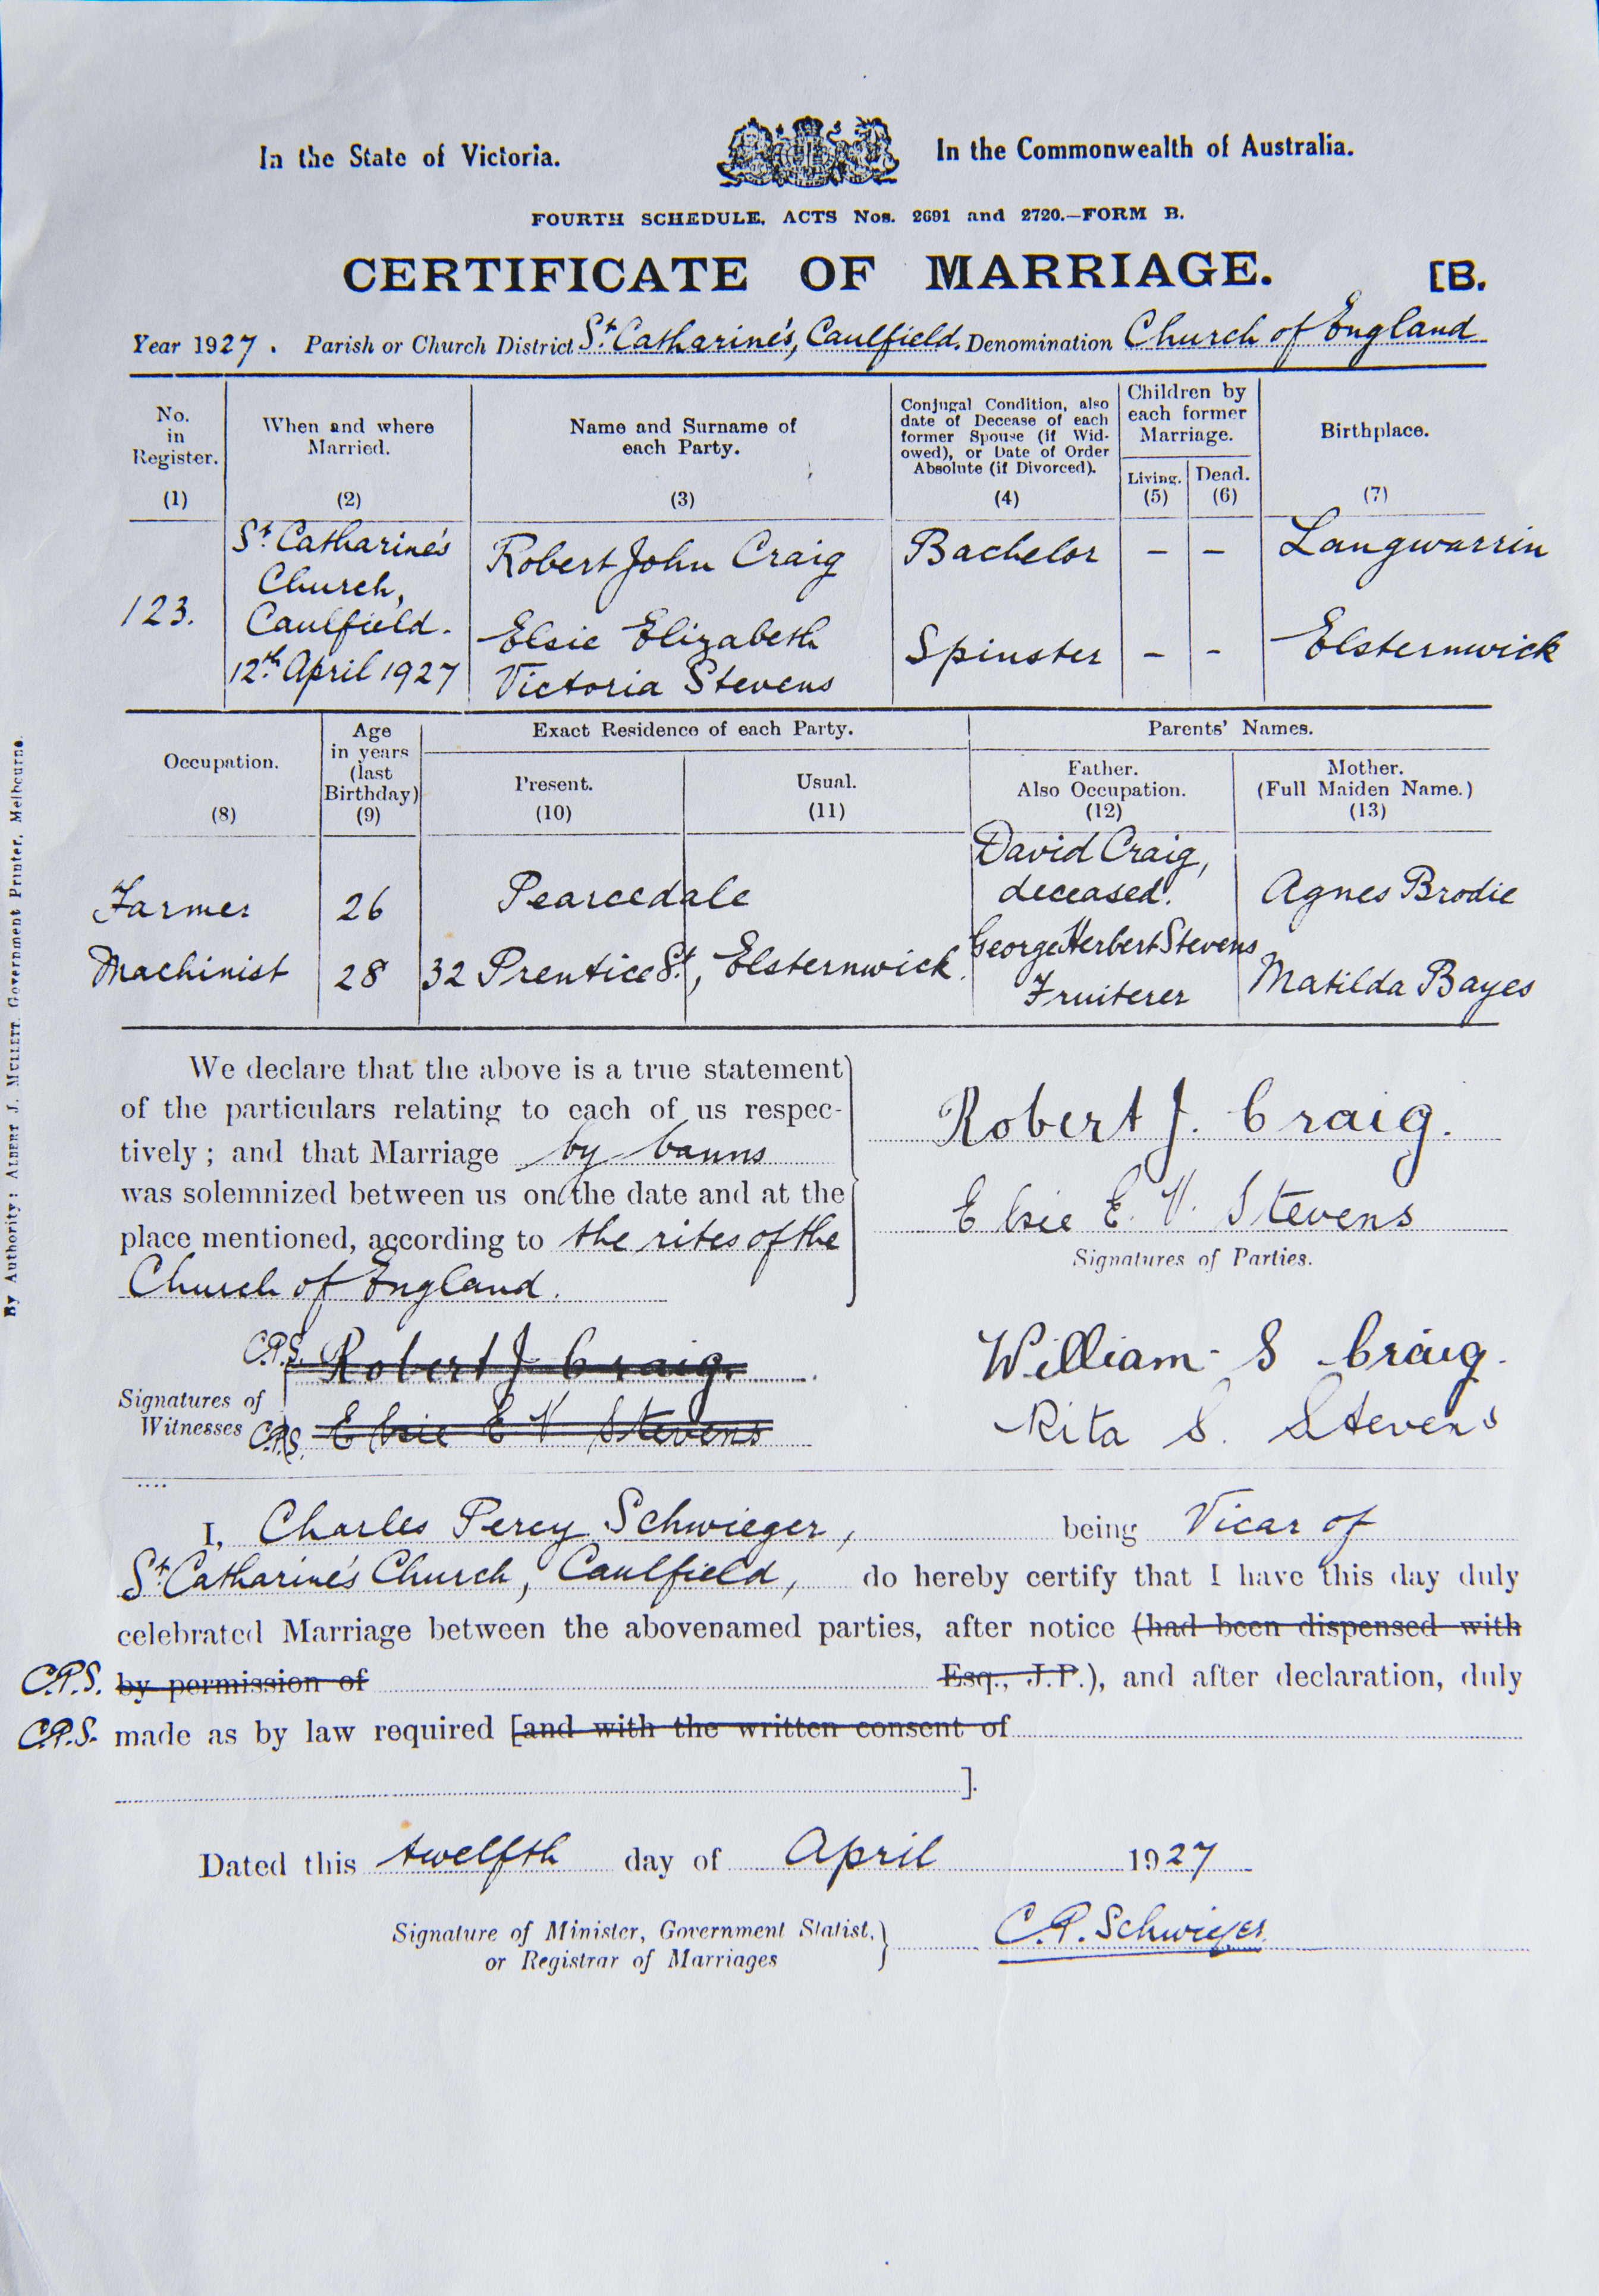 In the State of Victoria. In the Commonwealth of Australia.
FOURTH SCHEDULE, ACTS Nos. 2691 and 2720.—FORM B.
CERTIFICATE OF MARRIAGE. [B.
Year 1927. Parish or Church District St. Catharine's, Caulfield. Denomination Church of England
No. in Register. (1)
When and where Married. (2)
Name and Surname of each Party. (3)
Conjugal Condition, also date of Decease of each former Spouse (if Widowed), or Date of Order Absolute (if Divorced). (4)
Children by each former Marriage.
Living. (5)
Dead. (6)
Birthplace. (7)
123.
St. Catharine's
Church,
Caulfield.
12th April 1927
Robert John Craig Bachelor – – Langwarrin
Elsie Elizabeth
Victoria Stevens Spinster – – Elsternwick
Occupation. (8)
Age in years (last Birthday) (9)
Exact Residence of each Party.
Present. (10)
Usual. (11)
Parents' Names.
Father. Also Occupation. (12)
Mother. (Full Maiden Name.) (13)
Farmer 26 Pearcedale David Craig, deceased. Agnes Brodie
Machinist 28 32 Prentice St., Elsternwick. George Herbert Stevens Fruiterer Matilda Bayes
We declare that the above is a true statement
of the particulars relating to each of us respec-
tively; and that Marriage by banns
was solemnized between us on the date and at the
place mentioned, according to the rites of the
Church of England.
Robert J. Craig.
Elsie E. V. Stevens
Signatures of Parties.
Signatures of Witnesses
C.P.S. Robert J Craig.
C.P.S. Elsie E V Stevens
William S Craig.
Rita S. Stevens
I, Charles Percy Schwieger, being Vicar of
St. Catharine's Church, Caulfield, do hereby certify that I have this day duly
celebrated Marriage between the abovenamed parties, after notice (had been dispensed with
C.P.S. by permission of Esq., J.P.), and after declaration, duly
C.P.S. made as by law required [and with the written consent of
].
Dated this twelfth day of April 1927
Signature of Minister, Government Statist,
or Registrar of Marriages
C.P. Schwieger
By Authority: ALBERT J. MULLETT, Government Printer, Melbourne.